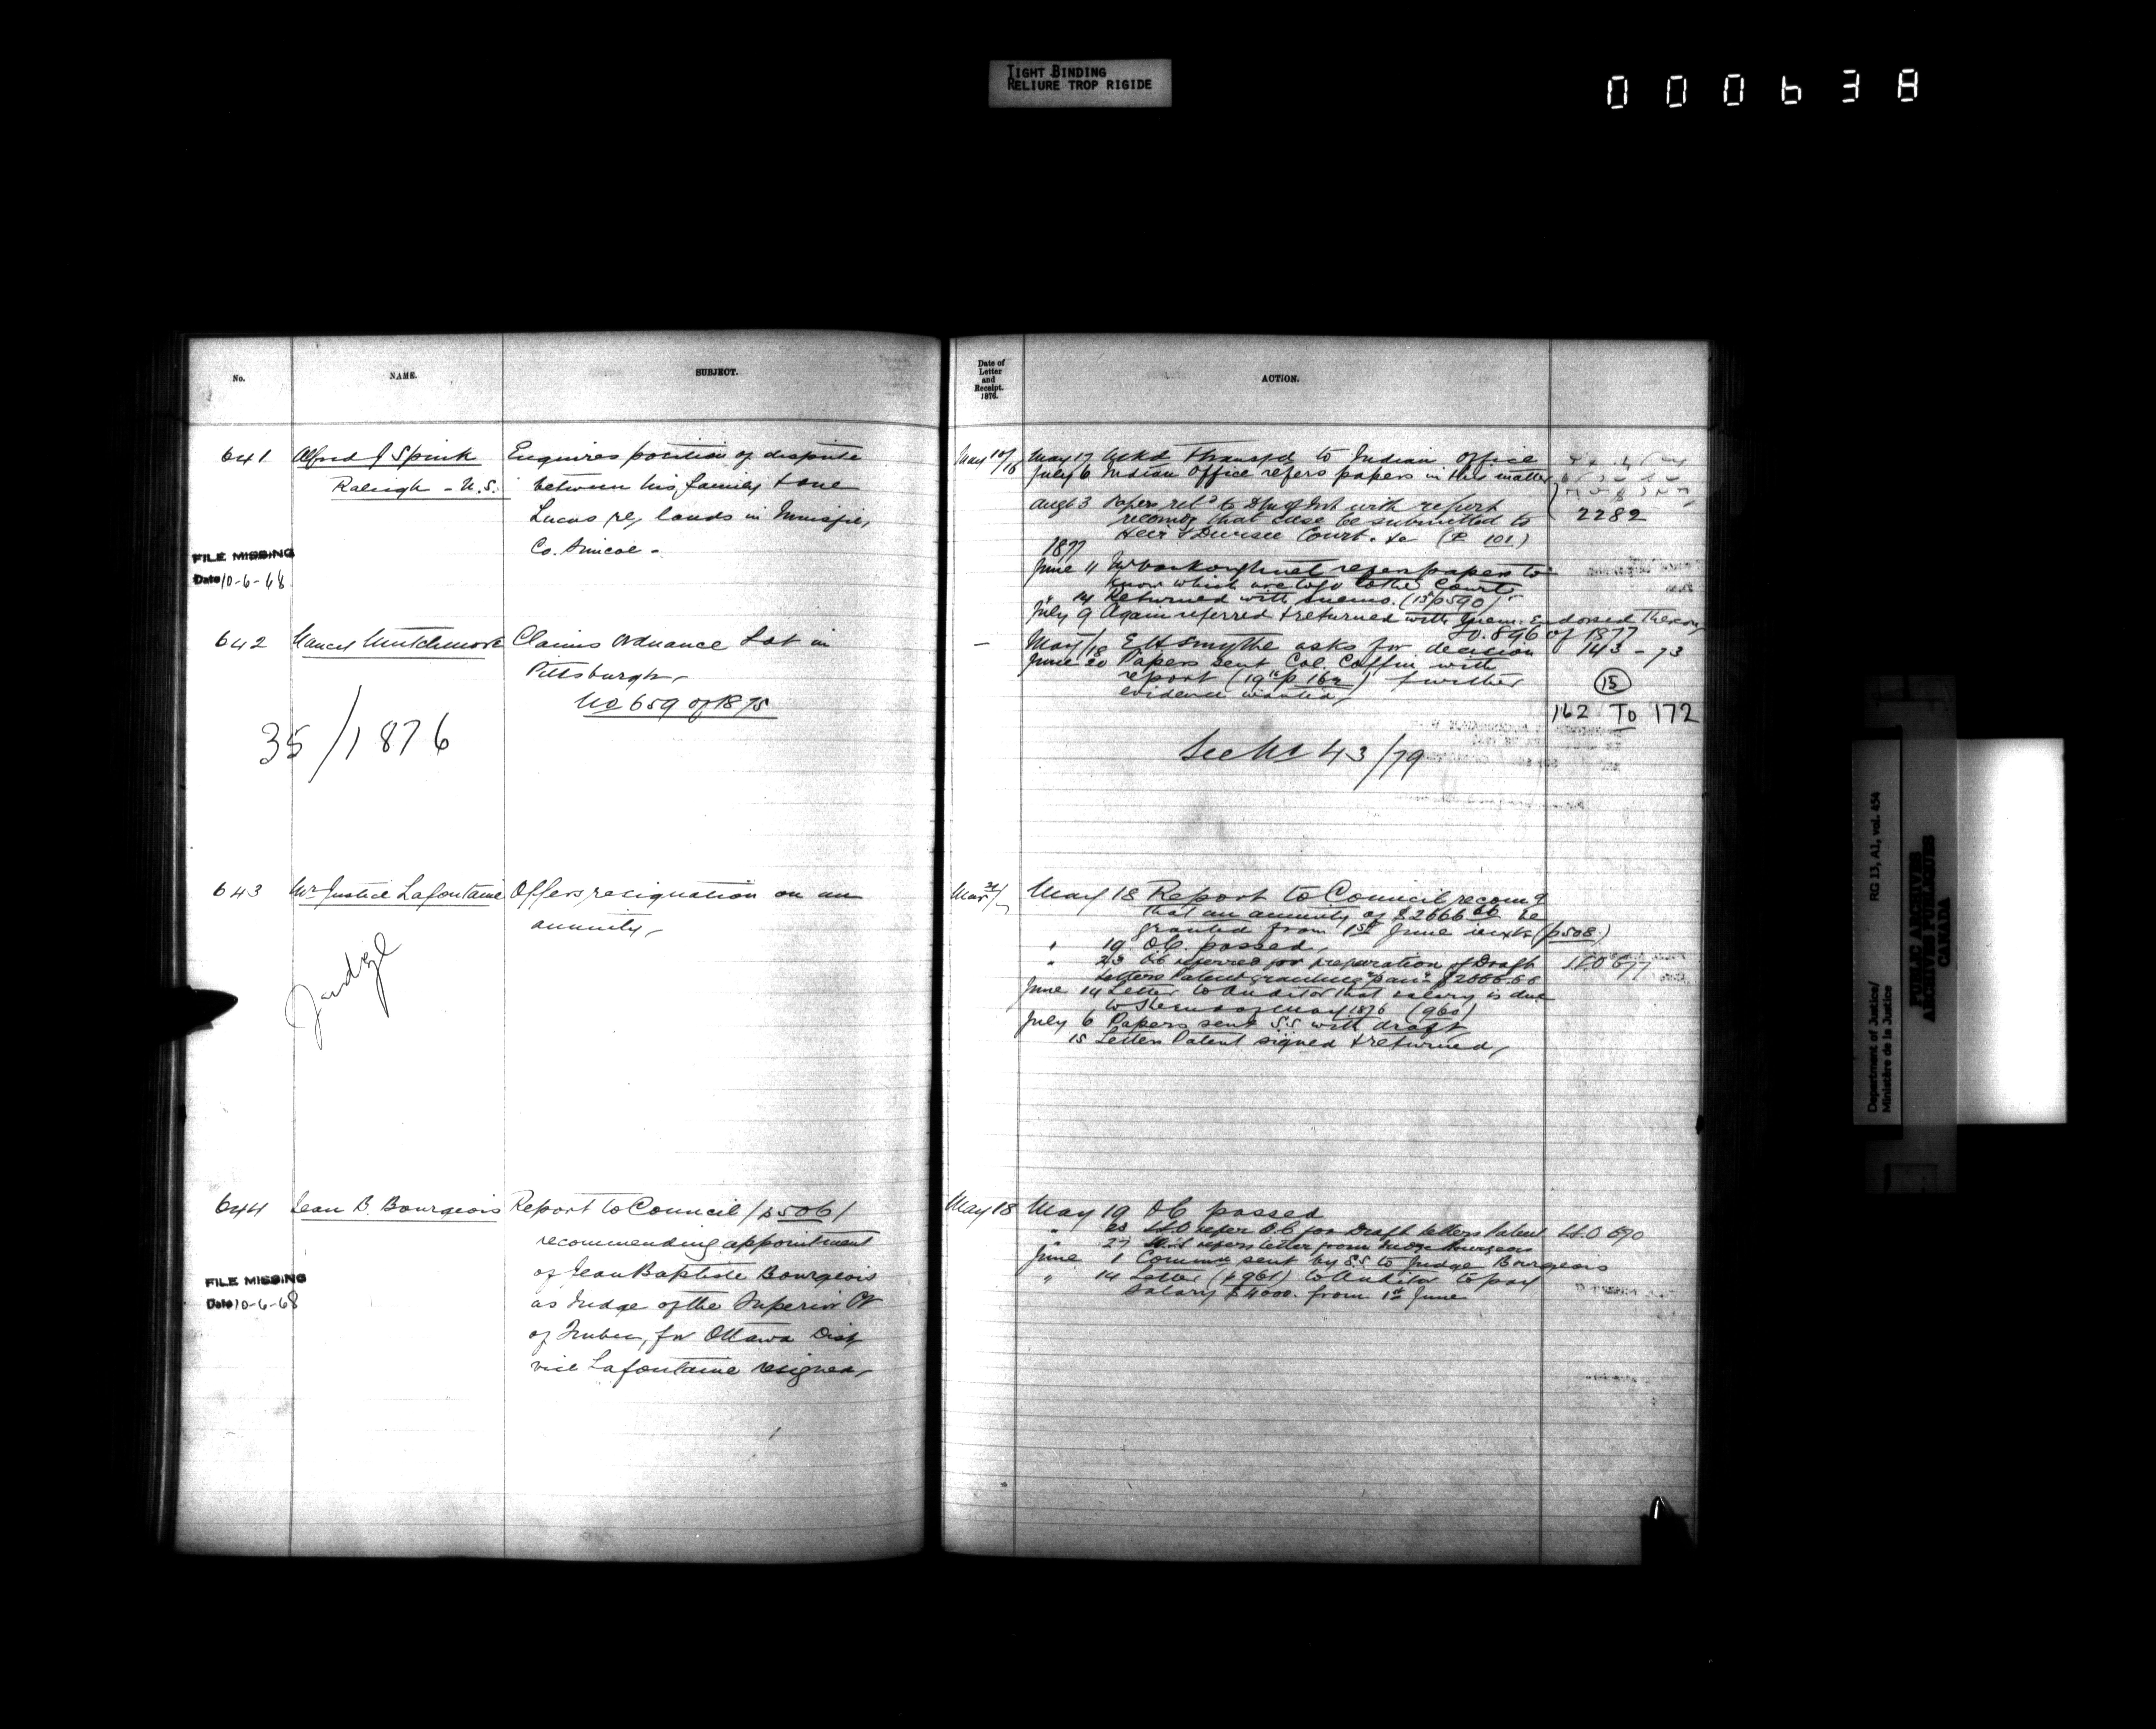 TIGHT BINDING
RELIURE TROP RIGIDE
000638
No.
NAME.
SUBJECT.
641
Alfred J Spink
Raleigh - U.S.
Enquires position of dispute
between his family & one
Lucas re, lands in
Co. Simcoe -
FILE MISSING
Date 10-6-68
642
Nancy Mutchmore
Claims Ordnance Lot in
Pittsburgh,
No 659 of 1875
35/1876
643
Mr Justice Lafontaine
Offers resignation on an
annuity,
Judge
644
Jean B. Bourgeois
Report to Council (p 506)
recommending appointment
of Jean Baptiste Bourgeois
as Judge of the Superior Ct
of Quebec, for Ottawa Dist
vice Lafontaine resigned,
FILE MISSING
Date 10-6-68
Date of
Letter
and
Receipt.
1876.
ACTION.
May 10/16
May 17 Transfd to Indian office
July 6 Indian Office refers papers in this matter
Augt 3 Papers retd to of Int with report
recomg that case be submitted to
Heir & Devisee Court. &c (P 101)
2282
1877
June 11 refers papers to
know which are to go to the Court
" 14 Returned with memo. (15 p 590)
July 9 Again referred & returned with Mem. Endorsed thereon
896 of 1877
-
May/18 E H Smythe asks for decision
143-73
June 20 Papers sent Col. Coffin with
report (19 p 162) further
evidence wanted,
15
162 To 172
See No 43/79
Mar 31/
May 18 Report to Council recomg
that an annuity of $2666 66 be
granted from 1st June next (p 508)
" 19 O.C. passed,
" 23 OC referred for preparation of Draft
Letters Patent granting $2666.66
677
June 14 Letter to Auditor that salary is due
to May 1876 (960)
July 6 Papers sent S.S with draft
15 Letters Patent signed & returned,
May 18
May 19 OC passed
" 23 refer O.C. for Draft letters Patent
690
" 27 refers letter from Judge Bourgeois
June 1 Commn sent by S.S to Judge Bourgeois
" 14 Letter (p 961) to Auditor to pay
Salary $4000. from 1st June
Department of Justice/
Ministère de la Justice
RG 13, A1, vol. 454
PUBLIC ARCHIVES
ARCHIVES PUBLIQUES
CANADA